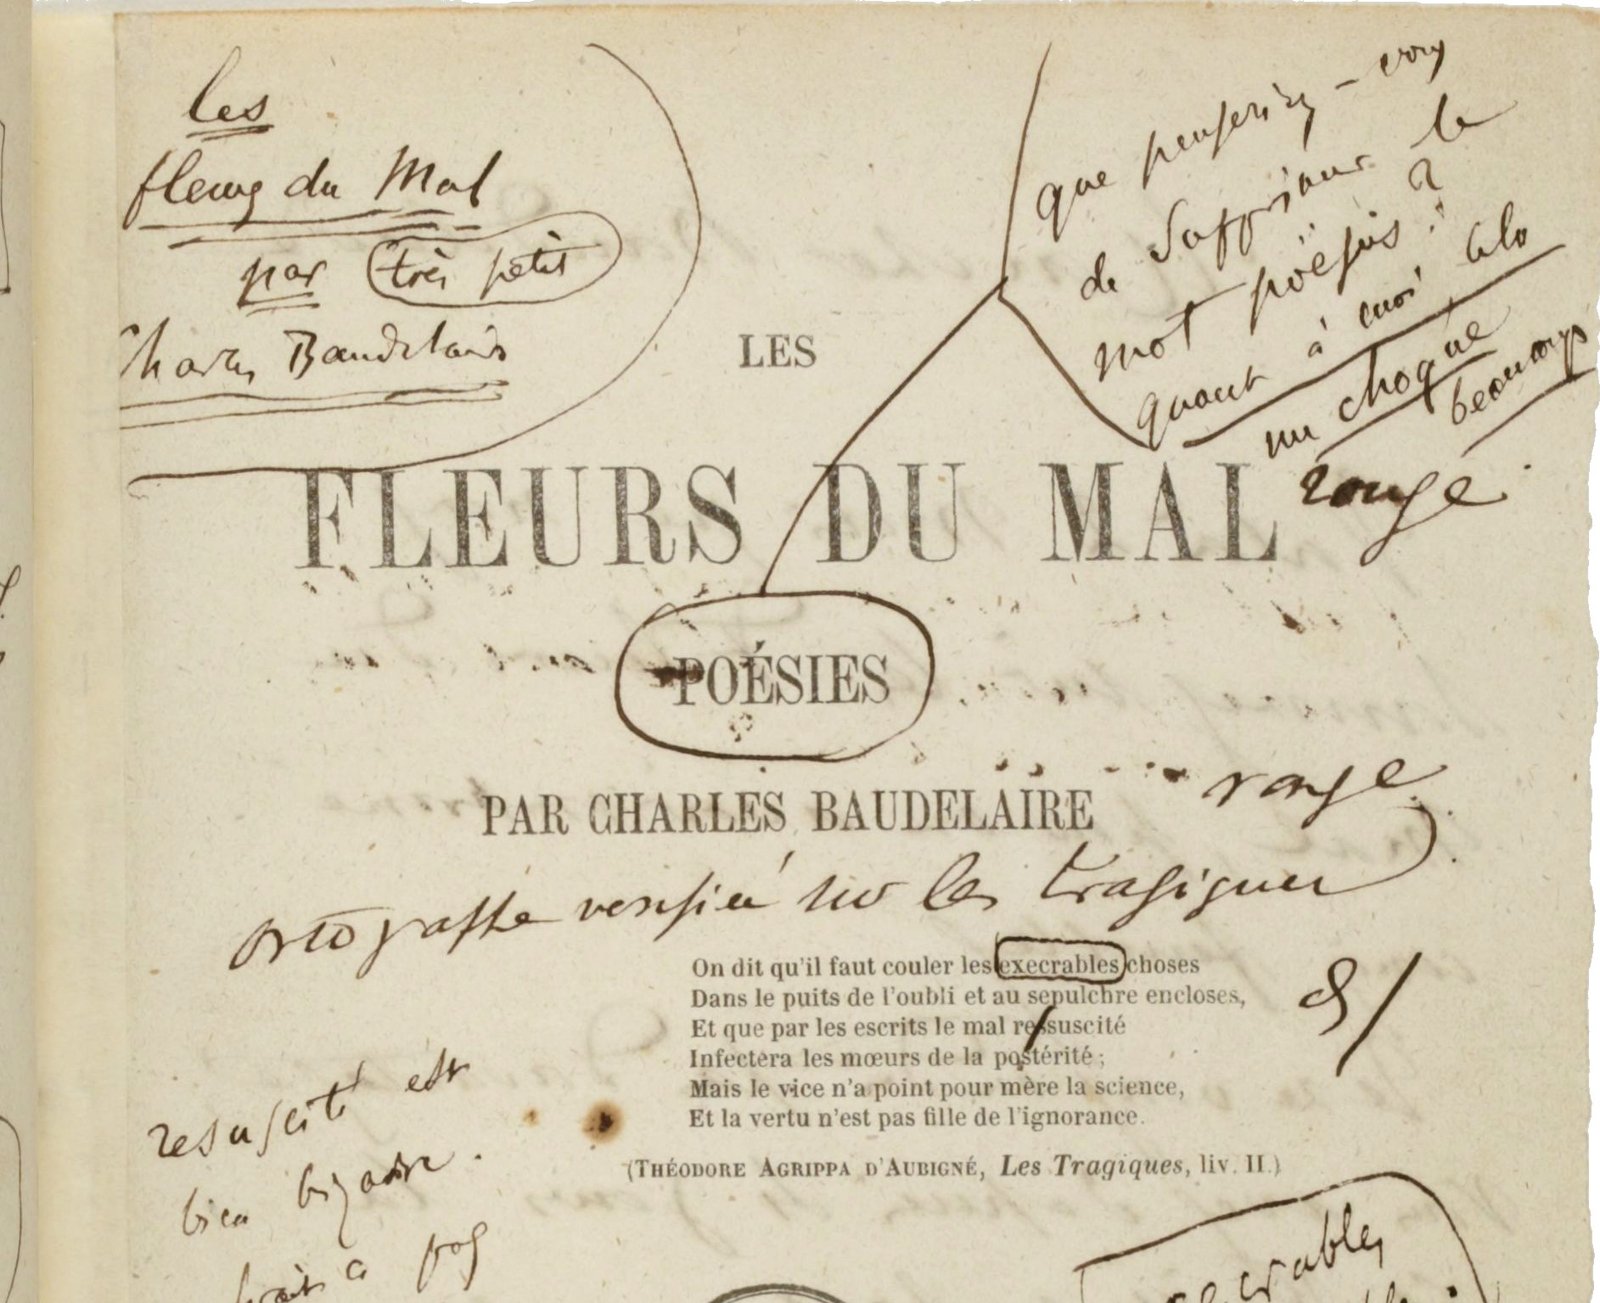 les
fleurs du Mal
par très petit
Charles Baudelaire
que penseriez-vous
de supprimer le
mot poësies ?
quant à moi cela
me choque
beaucoup
LES
FLEURS DU MAL
rouge
POÉSIES
PAR CHARLES BAUDELAIRE
rouge
sur les tragiques
On dit qu'il faut couler les execrables choses
Dans le puits de l'oubli et au sepulchre encloses,
Et que par les escrits le mal ressuscité
Infectera les mœurs de la postérité ;
Mais le vice n'a point pour mère la science,
Et la vertu n'est pas fille de l'ignorance.
(THÉODORE AGRIPPA D'AUBIGNÉ, Les Tragiques, liv. II.)
resuscité est
bien bizarre.